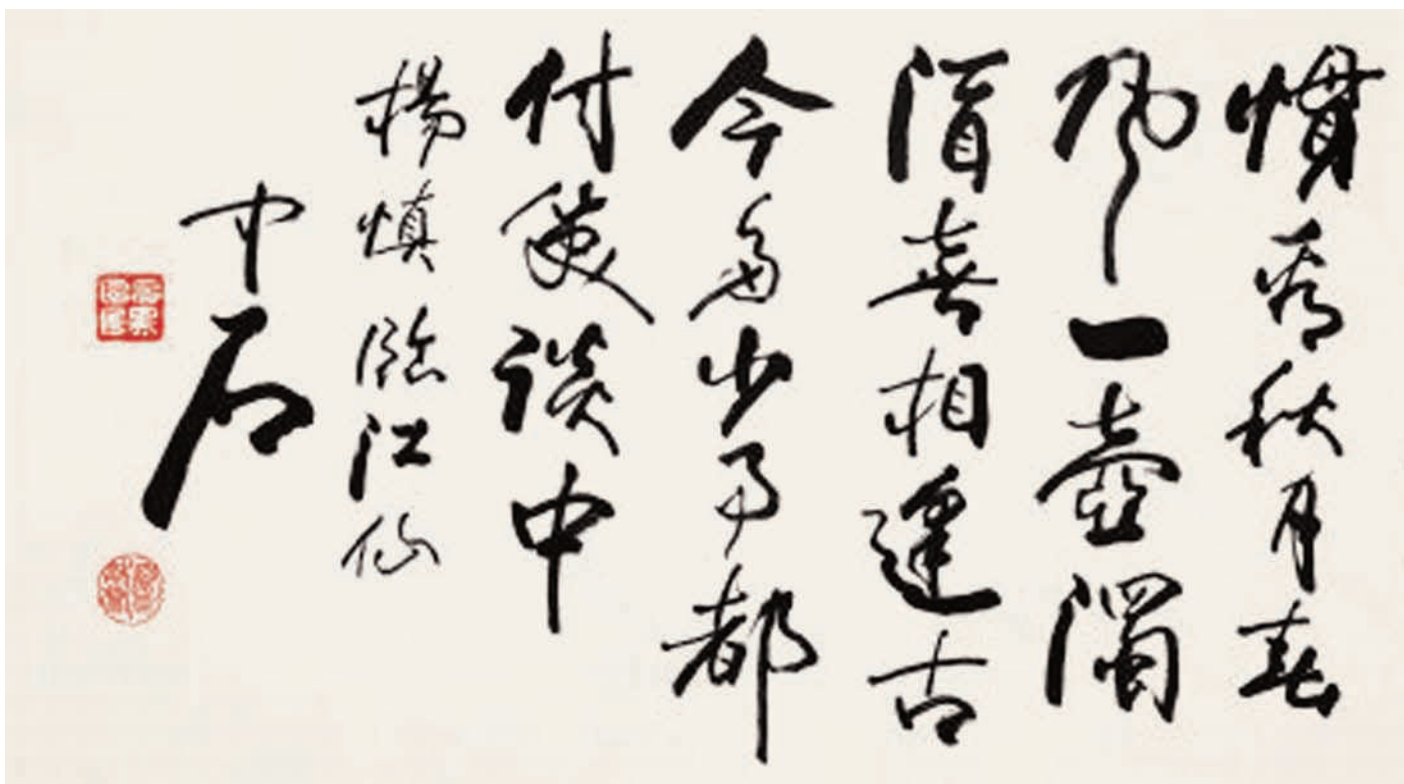 慣看秋月春
風一壺濁
酒喜相逢古
今多少事都
付笑談中
楊慎臨江仙
中石